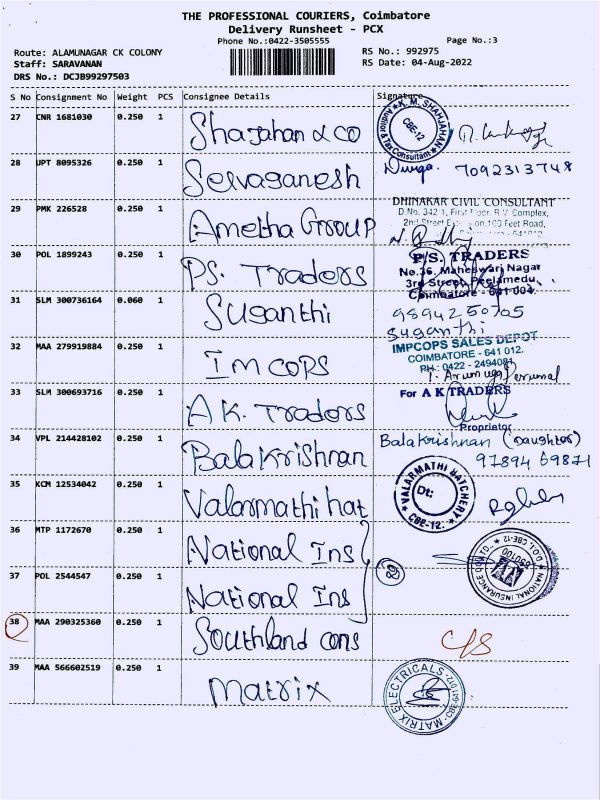 THE PROFESSIONAL COURIERS, Coimbatore
Delivery Runsheet - PCX
Phone No.:0422-3505555 Page No.:3
Route: ALAMUNAGAR CK COLONY RS No.: 992975
Staff: SARAVANAN RS Date: 04-Aug-2022
DRS No.: DCJB99297503
S No Consignment No Weight PCS Consignee Details Signature
27 CNR 1681030 0.250 1 Shajahan & CO
K. M. SHAHJAHAN
Auditor & Tax Consultant
CBE-12
28 UPT 8095326 0.250 1 Selvaganesh Durga. 7092313748
29 PMK 226528 0.250 1 Ametha Group
DHINAKAR CIVIL CONSULTANT
D.No. 342-1, First Floor, R.V. Complex,
100 Feet Road,
30 POL 1899243 0.250 1 PS. Traders
P.S. TRADERS
No.36, Maheswari Nagar
3rd Street, Peelamedu,
Coimbatore - 641 004.
31 SLM 300736164 0.060 1 Suganthi 9894250705
Suganthi
32 MAA 279919884 0.250 1 Imcops
IMPCOPS SALES DEPOT
COIMBATORE - 641 012.
PH.: 0422 - 2494081
33 SLM 300693716 0.250 1 A K. Traders
For A K TRADERS
Proprietor
34 VPL 214428102 0.250 1 Balakrishnan Balakrishnan (Daughter)
97894 69871
35 KCM 12534042 0.250 1 Valarmathi hat
VALARMATHI HATCHERY
Dt:
CBE-12.
36 MTP 1172670 0.250 1 National Ins
37 POL 2544547 0.250 1 National Ins
NATIONAL INSURANCE CO. LTD. D.O.I, CBE-12
38 MAA 290325360 0.250 1 Southland cons C/S
39 MAA 566602519 0.250 1 Matrix
MATRIX ELECTRICALS
CBE-641 012